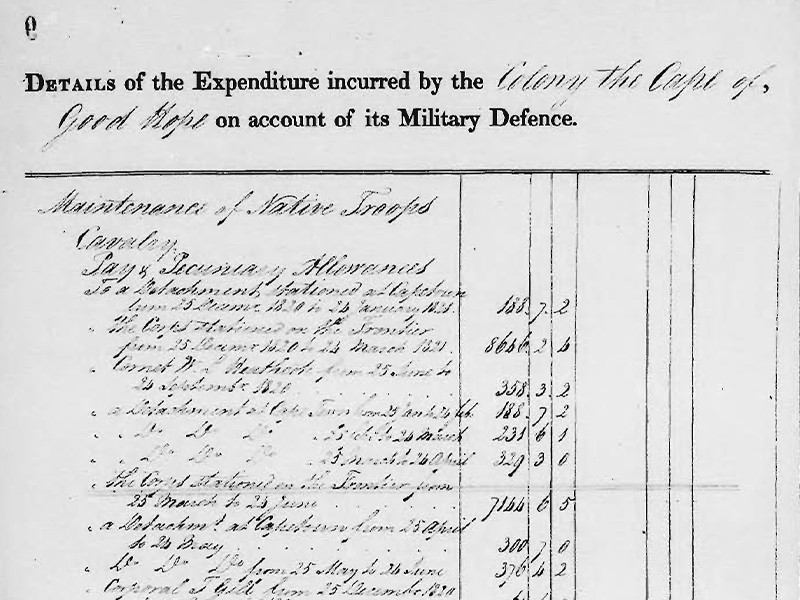 DETAILS of the Expenditure incurred by the Colony the Cape of,
Good Hope on account of its Military Defence.
Maintenance of Native Troops
Cavalry.
Pay & Pecuniary Allowances
To a Detachment stationed at Capetown
from 25 Decemr. 1820 to 24 January 1821. 188 7 2
" the Corps stationed on the Frontier
from 25 Decemr 1820 to 24 March 1821. 8646 2 4
" Cornet W. L. from 25 June to
24 Septembr. 1820 358 3 2
" a Detachment at Cape Town from 25 Jan to 24 Feb. 188 7 2
" " Do Do Do " 25 Feb to 24 March 231 6 1
" " Do Do Do " 25 March to 24 April 329 3 0
" the Corps stationed on the Frontier from
25 March to 24 June 7144 6 5
" a Detachmt. at Capetown from 25 April
to 24 May 300 7 0
" Do Do Do from 25 May to 24 June 376 4 2
" Corporal T. Gill from 25 December 1820